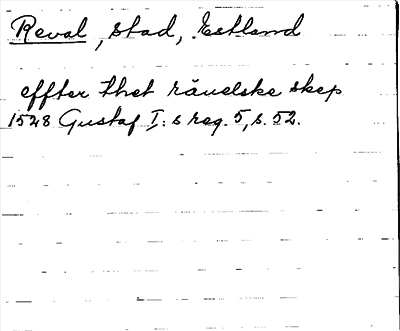 Reval, stad, Estland
effter thet räuelske skep
1528 Gustaf I:s reg. 5, s. 52.